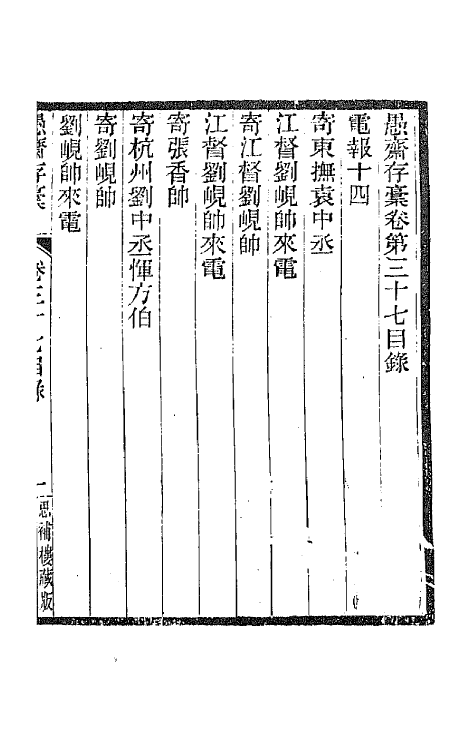 愚齋存稾卷第三十七目錄
電報十四
寄東撫袁中丞
江督劉峴帥來電
寄江督劉峴帥
江督劉峴帥來電
寄張香帥
寄杭州劉中丞惲方伯
寄劉峴帥
劉峴帥來電
愚齋存稾 卷三十七目錄 一 思補樓藏版